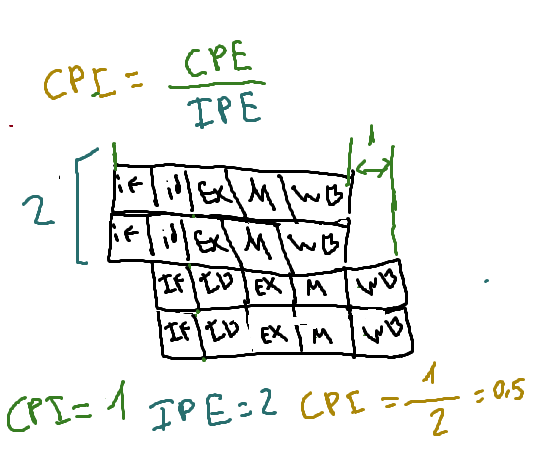 CPI = CPE / IPE
1
2
iF id EX M WB
iF id EX M WB
IF ID EX M WB
IF ID EX M WB
CPI = 1 IPE = 2 CPI = 1/2 = 0.5